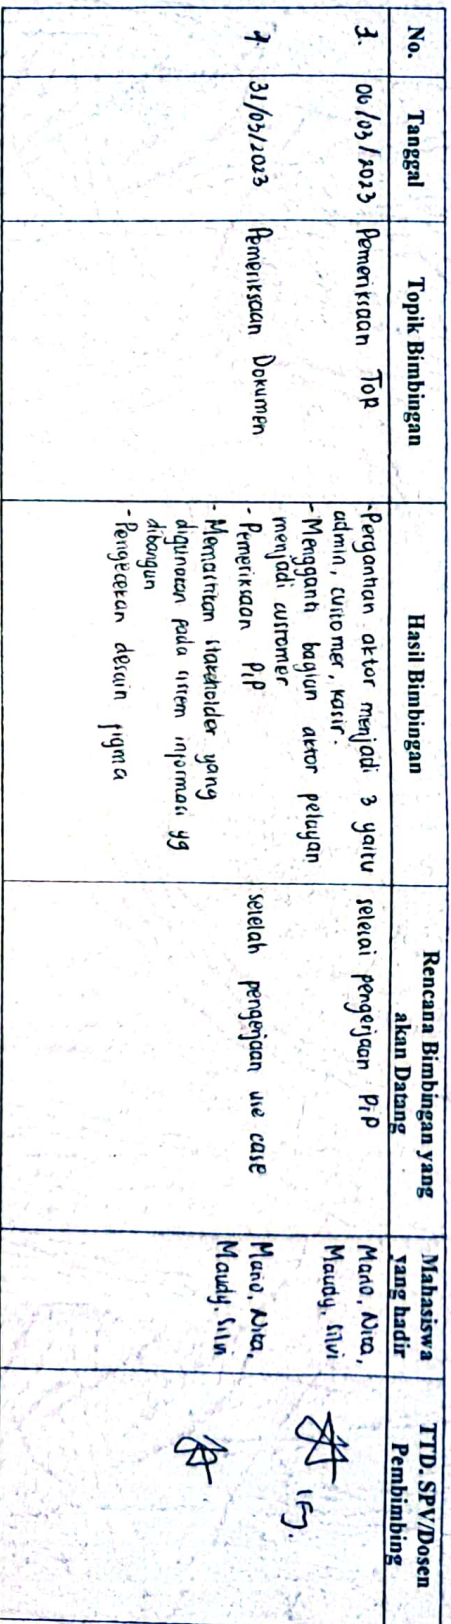 No.
Tanggal
Topik Bimbingan
Hasil Bimbingan
Rencana Bimbingan yang
akan Datang
Mahasiswa
yang hadir
TTD. SPV/Dosen
Pembimbing
1.
06/03/2023
Pemeriksaan TOR
- Pergantian aktor menjadi 3 yaitu
admin, customer, kasir.
- Mengganti bagian aktor pelayan
menjadi customer
selesai pengerjaan PiP
Mario, Nita,
Maudy, Silvi
31/03/2023
Pemeriksaan Dokumen
- Pemeriksaan PiP
- Memastikan stakeholder yang
digunakan pada sistem informasi yg
dibangun
- Pengecekan desain figma
setelah pengerjaan use case
Mario, Nita,
Maudy, Silvi